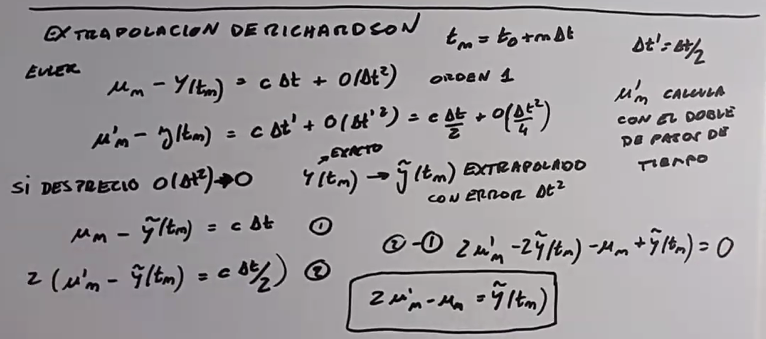 EXTRAPOLACION DE RICHARDSON
t_m = t_0 + mΔt
Δt' = Δt/2
EULER
μ_m - y(t_m) = c Δt + O(Δt²) ORDEN 1
μ'_m - y(t_m) = c Δt' + O(Δt'²) = c Δt/2 + O(Δt²/4)
μ'_m CALCULA
CON EL DOBLE
DE PASOS DE
TIEMPO
SI DESPRECIO O(Δt²)→0
EXACTO
y(t_m) → ỹ(t_m) EXTRAPOLADO
CON ERROR Δt²
μ_m - ỹ(t_m) = c Δt ①
2 (μ'_m - ỹ(t_m) = c Δt/2) ②
②-① 2μ'_m - 2ỹ(t_m) - μ_m + ỹ(t_m) = 0
2μ'_m - μ_m = ỹ(t_m)